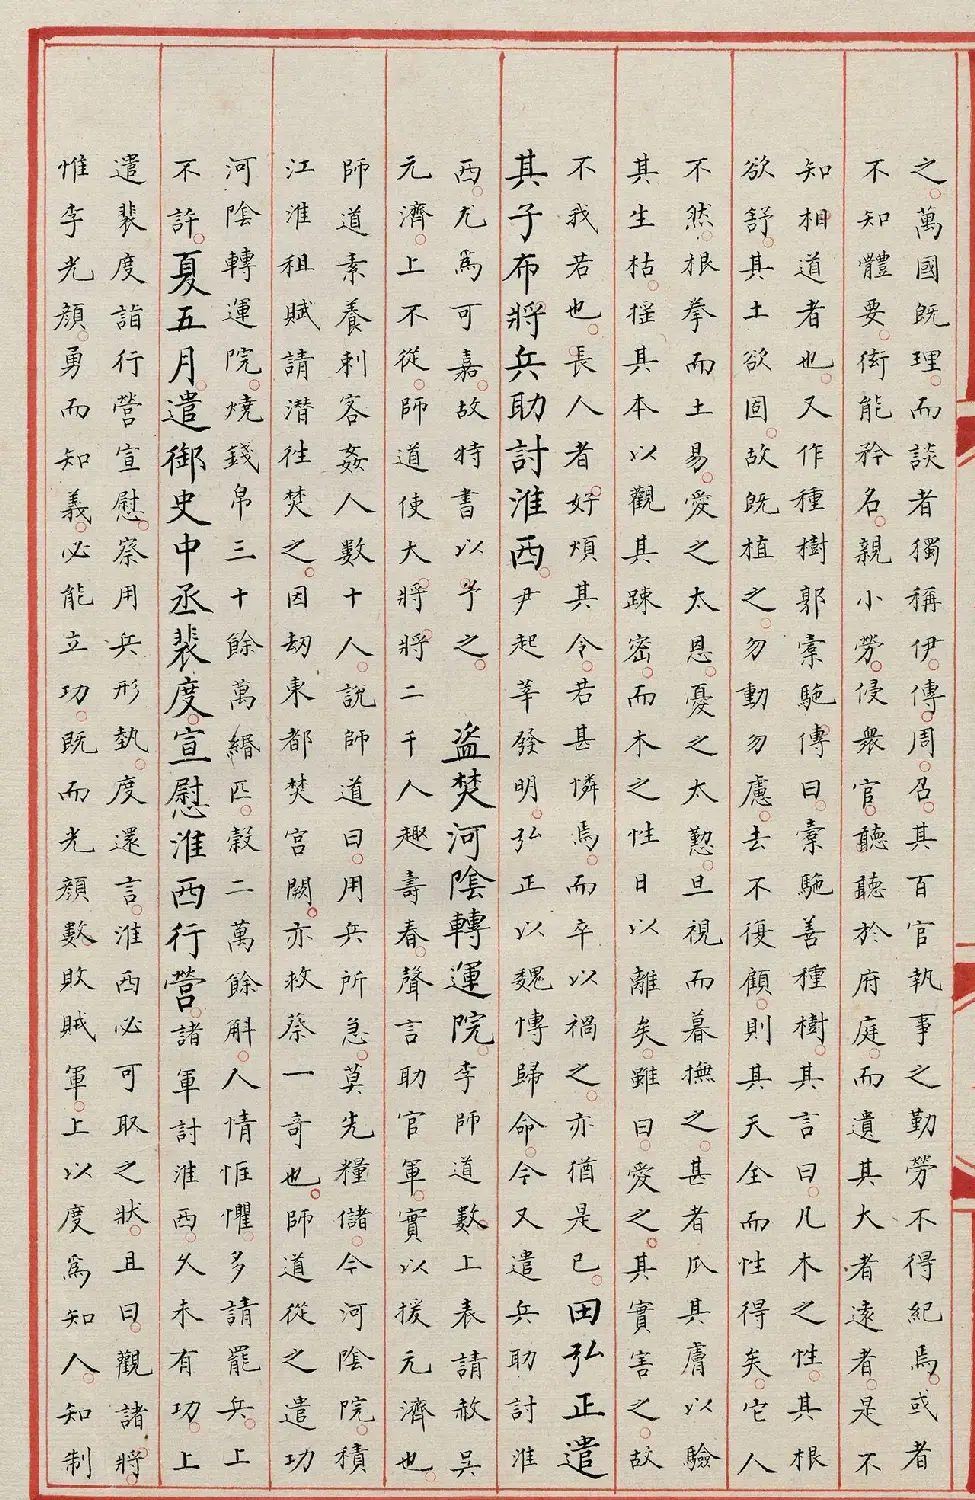 之。萬國既理。而談者獨稱伊。傅。周。召。其百官執事之勤勞不得紀焉。或者
不知體要。衒能矜名。親小勞。侵衆官。聽聽於府庭。而遺其大者遠者。是不
知相道者也。又作種樹郭橐駝傳曰。橐駝善種樹。其言曰。凡木之性。其根
欲舒。其土欲固。故既植之。勿動勿慮。去不復顧。則其天全而性得矣。它人
不然。根拳而土易。愛之太恩。憂之太懃。旦視而暮撫之。甚者爪其膚以驗
其生枯。搖其本以觀其疎密。而木之性日以離矣。雖曰。愛之。其實害之。故
不我若也。長人者。好煩其令。若甚憐焉。而卒以禍之。亦猶是已。田弘正遣
其子布將兵助討淮西。尹起莘發明。弘正以魏博歸命。今又遣兵助討淮
西。尤爲可嘉。故特書以予之。 盜焚河陰轉運院。李師道數上表請赦吳
元濟。上不從。師道使大將將二千人趣壽春。聲言助官軍。實以援元濟也。
師道素養刺客姦人數十人。說師道曰。用兵所急。莫先糧儲。今河陰院積
江淮租賦請潛往焚之。因刼東都焚宮闕。亦救蔡一奇也。師道從之遣功
河陰轉運院。燒錢帛三十餘萬緡匹。穀二萬餘斛。人情恇懼。多請罷兵。上
不許。夏五月。遣御史中丞裴度。宣慰淮西行營。諸軍討淮西。久未有功。上
遣裴度詣行營宣慰。察用兵形勢。度還言。淮西必可取之狀。且曰。觀諸將。
惟李光顏。勇而知義。必能立功。既而光顏數敗賊軍。上以度爲知人。知制